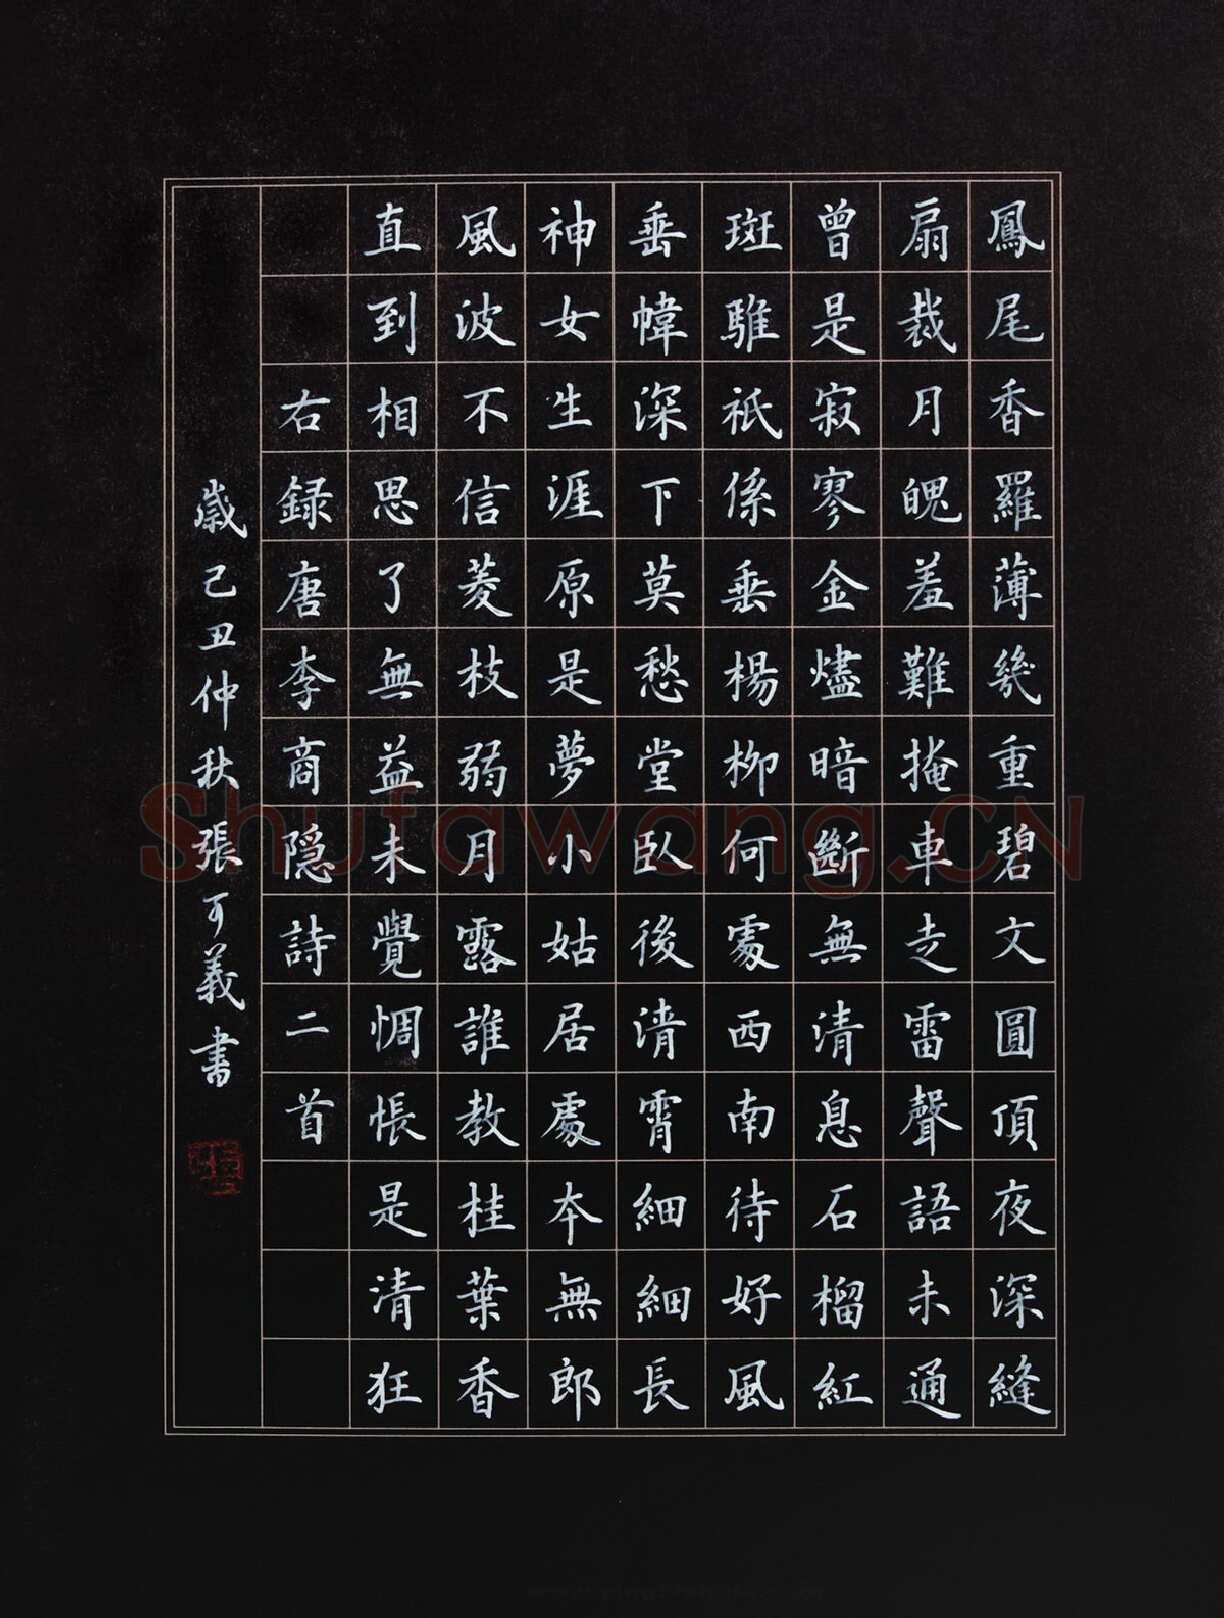 鳳尾香羅薄幾重碧文圓頂夜深縫
扇裁月魄羞難掩車走雷聲語未通
曾是寂寥金燼暗斷無清息石榴紅
斑騅衹係垂楊柳何處西南待好風
垂幃深下莫愁堂臥後清宵細細長
神女生涯原是夢小姑居處本無郎
風波不信菱枝弱月露誰教桂葉香
直到相思了無益未覺惆悵是清狂
右録唐李商隱詩二首
歲己丑仲秋張可義書
Shufawang.CN